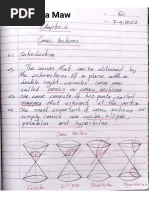 a Maw
Fri
7-4-2023
Chapter-6
Conic Sections
6.1 Introduction
The curves that can be obtained by
the intersections of a plane with a
double right circular cone are
called conics or conic sections
the cone consists of two parts called
nappes that intersect in the vertex
The most important of conic sections
simply conics are circles, ellipses
parabolas and hyperbolas.
Conic Section
Circular
Ellipse
Parabola
Hyperbola